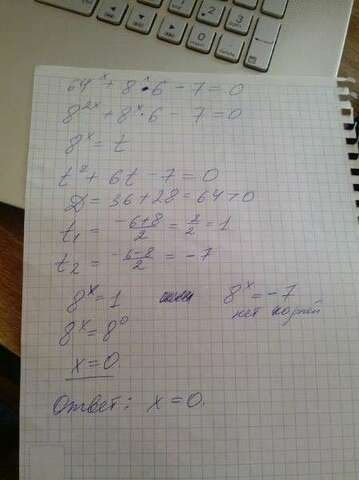 64ˣ + 8ˣ · 6 − 7 = 0
8²ˣ + 8ˣ · 6 − 7 = 0
8ˣ = t
t² + 6t − 7 = 0
D = 36 + 28 = 64 > 0
t₁ = (−6+8)/2 = 2/2 = 1
t₂ = (−6−8)/2 = −7
8ˣ = 1 или 8ˣ = −7
8ˣ = 8⁰ нет корней
x = 0
Ответ: x = 0.